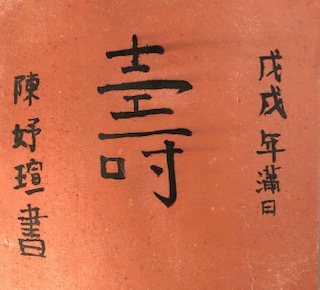 戊戌年滿日
壽
陳妤瑄書